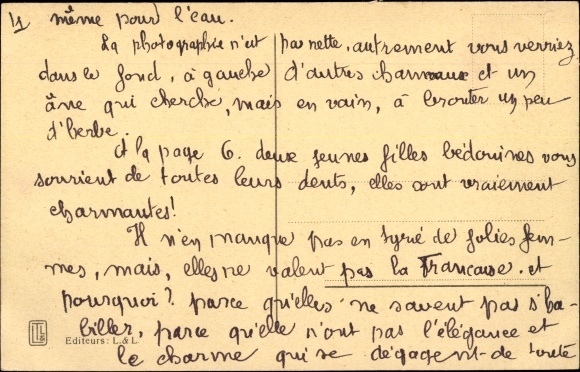 4 même pour l'eau.
La photographie n'est pas nette, autrement vous verriez
dans le fond, à gauche d'autres chameaux et un
âne qui cherche, mais en vain, à brouter un peu
d'herbe.
A la page 6. deux jeunes filles bédouines vous
sourient de toutes leurs dents, elles sont vraiement
charmantes!
Il n'en manque pas en Syrie de jolies fem-
mes, mais, elles ne valent pas la Francaise. et
pourquoi? parce qu'elles ne savent pas s'ha-
biller, parce qu'elle n'ont pas l'élégance et
le charme qui se dégagent de toute
Editeurs: L. & L